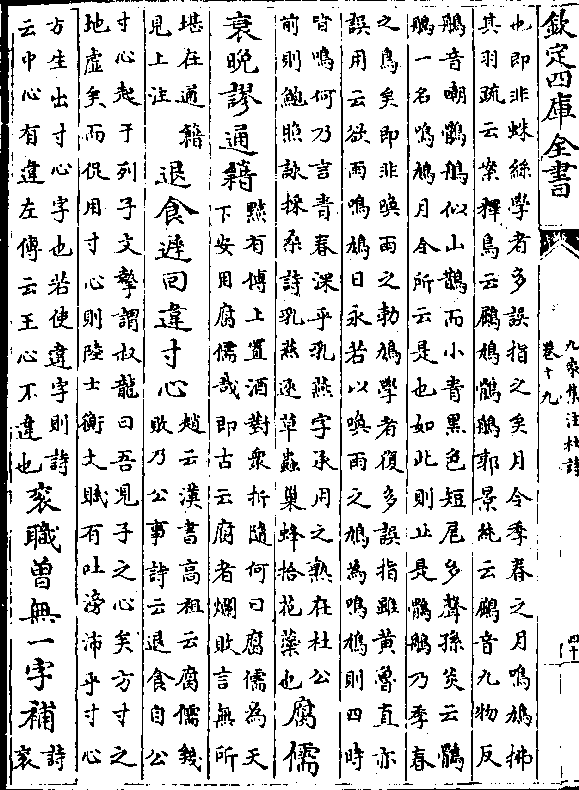 欽定四庫全書
九家集注杜詩
卷十九
四十一
也即非蛛絲學者多誤指之矣月令季春之月鳴鳩拂
其羽疏云案釋鳥云鶌鳩鶻鵃郭景純云鶌音九物反
鵃音嘲鶻鵃似山鵲而小青黑色短尾多聲孫炎云鶻
鵃一名鳴鳩月令所云是也如此則止是鶻鵃乃季春
之鳥矣即非喚雨之勃鳩學者復多誤指雖黄魯直亦
誤用云欲雨鳴鳩日永若以喚雨之鳩為鳴鳩則四時
皆鳴何乃言青春深乎乳燕字承用之熟在杜公
前則鮑照詠採桑詩乳燕逐草蟲巢蜂拾花蘂也
腐儒
衰晚謬通籍
點有傳上置酒對衆折隨何曰腐儒為天
下安用腐儒哉即古云腐者爛敗言無所
堪在通籍
見上注
退食遲回違寸心
趙云漢書高祖云腐儒幾
敗乃公事詩云退食自公
寸心起于列子文摯謂叔龍曰吾見子之心矣方寸之
地虛矣而侃用寸心則陸士衡文賦有吐滂沛乎寸心
方生出寸心字也若使違字則詩
云中心有違左傳云王心不違也
衮職曾無一字補
詩
衮